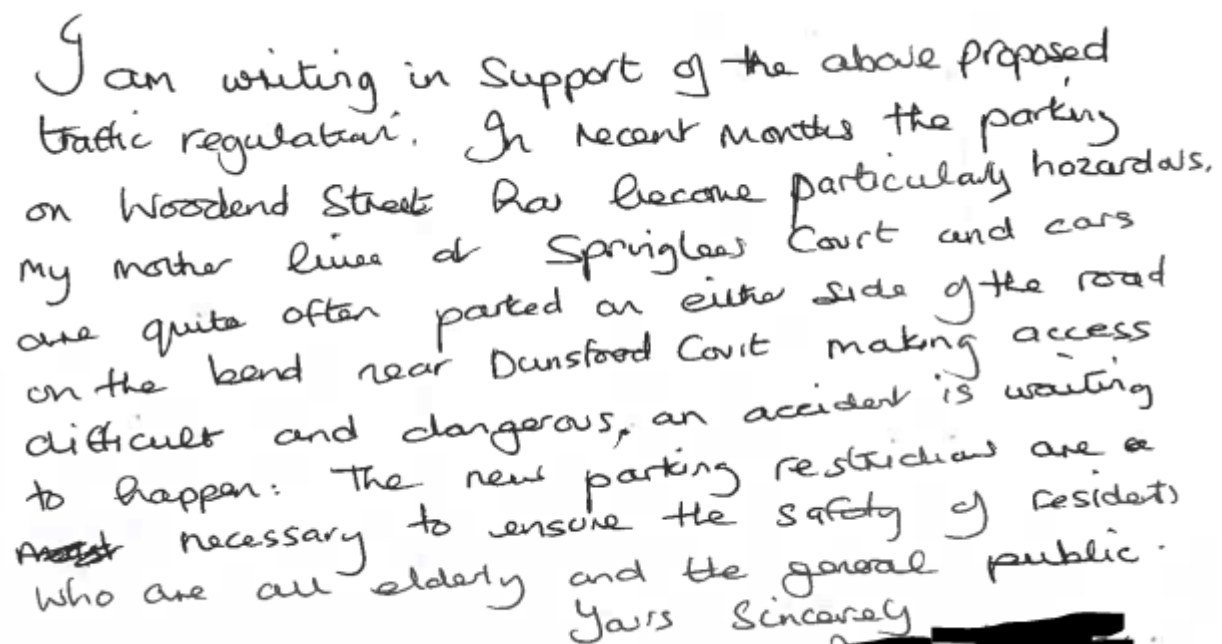 I am writing in Support of the above proposed
traffic regulation. In recent months the parking
on Woodend Street has become particularly hazardous.
My mother lives at Springlees Court and cars
are quite often parked on either side of the road
on the bend near Dunsford Court making access
difficult and dangerous, an accident is waiting
to happen. The new parking restrictions are a
necessary to ensure the safety of residents
who are all elderly and the general public.
Yours Sincerely